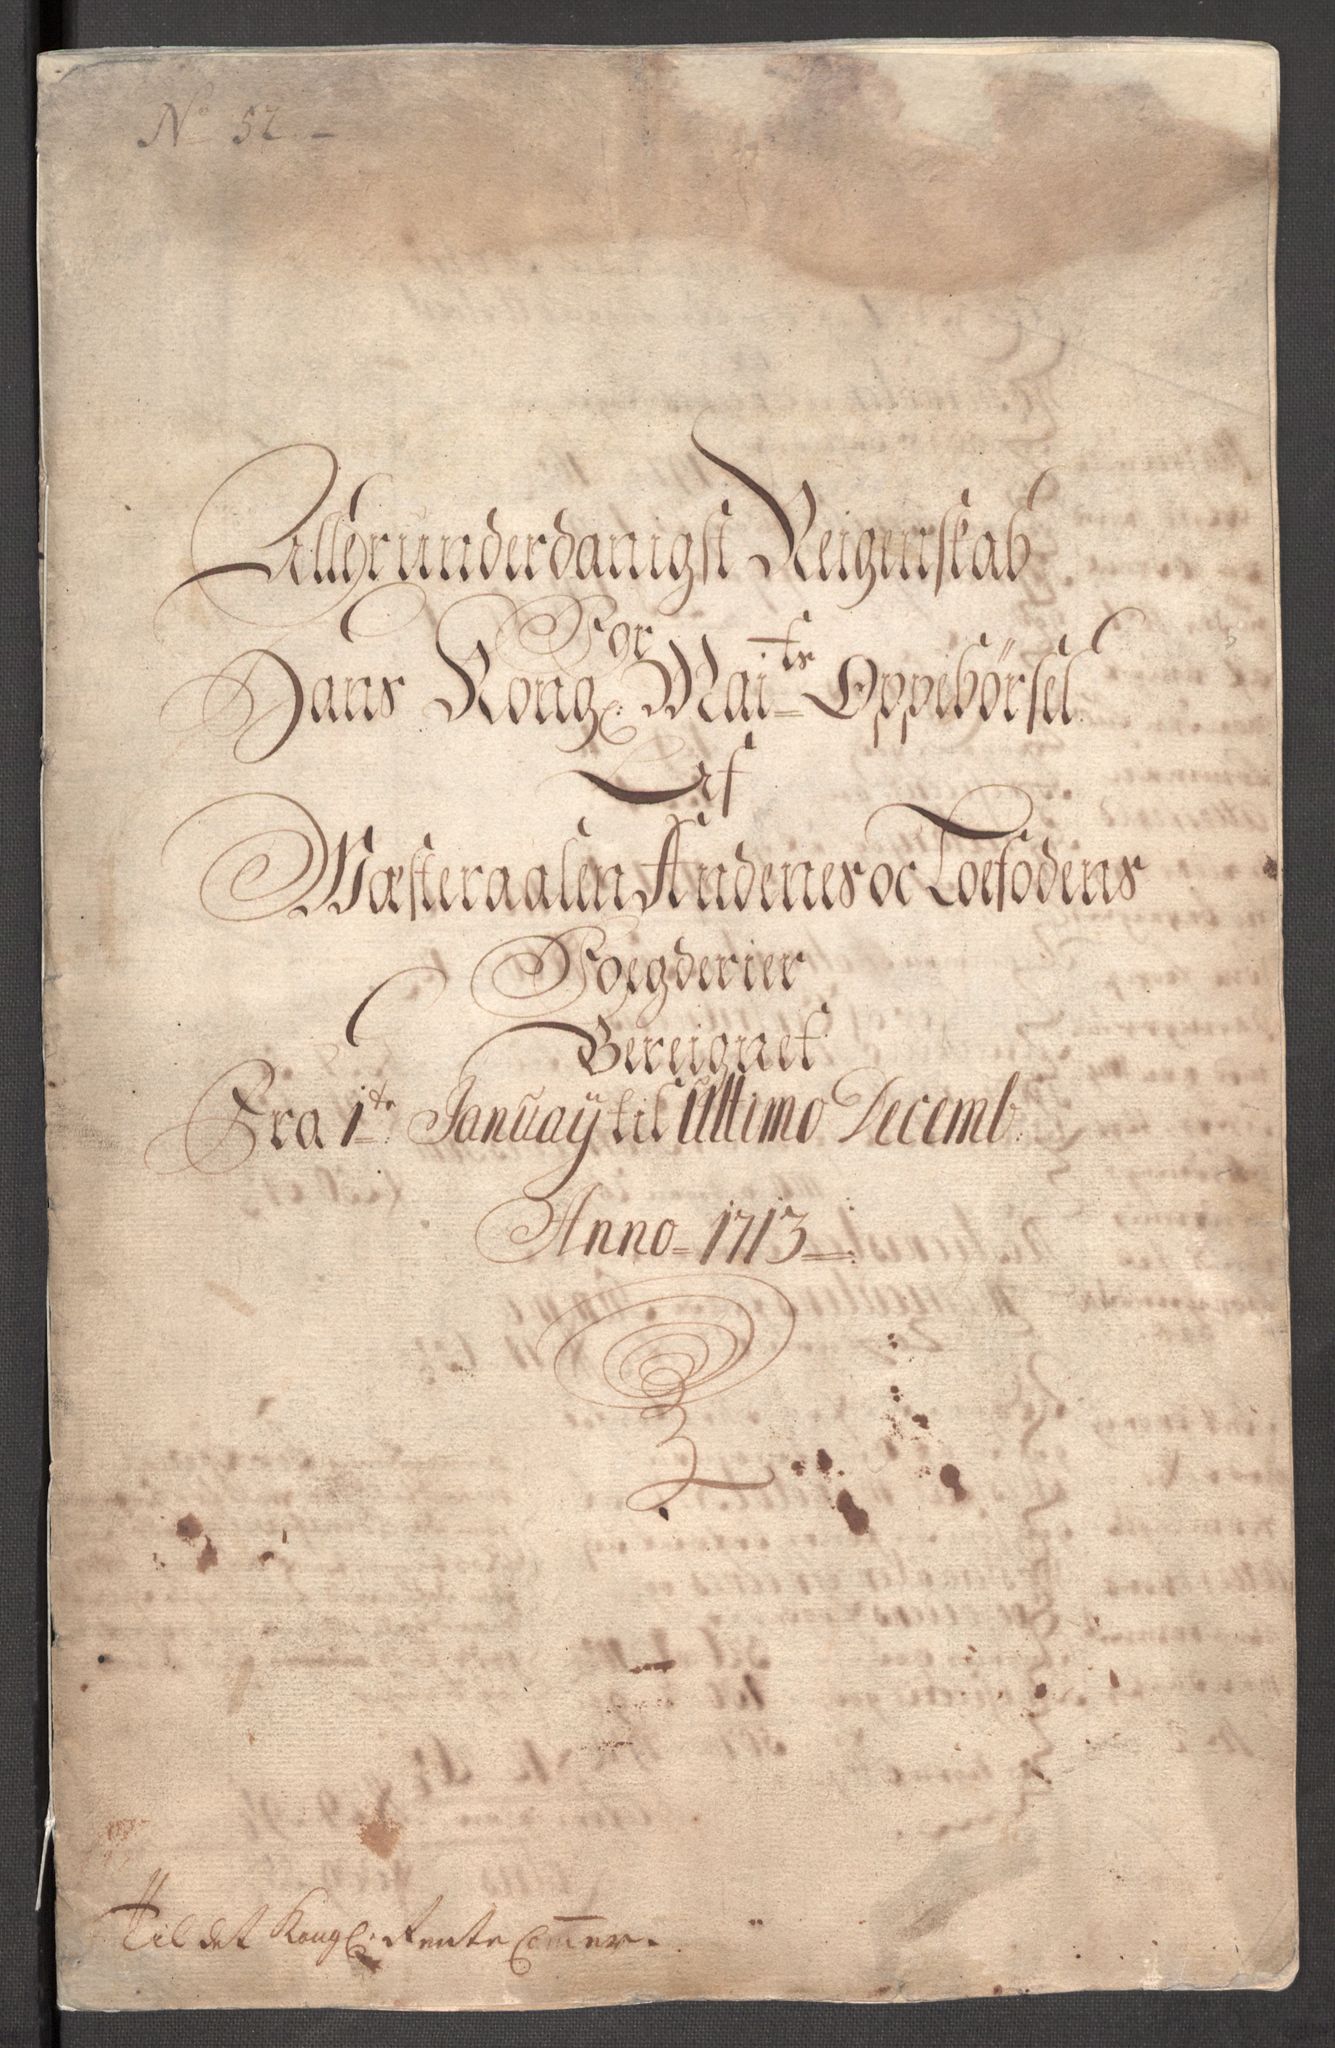 No 52.
Allerunderdanigst Reigenskab
For
Hans Kongl. Maits Oppebörsel
Af
Wæsteraalen Andenes oc Loefodens
Foegderier
Bereignet
Fra 1te January til Ultimo Decemb.
Anno 1713
Til det Kongl. Rente Camer.